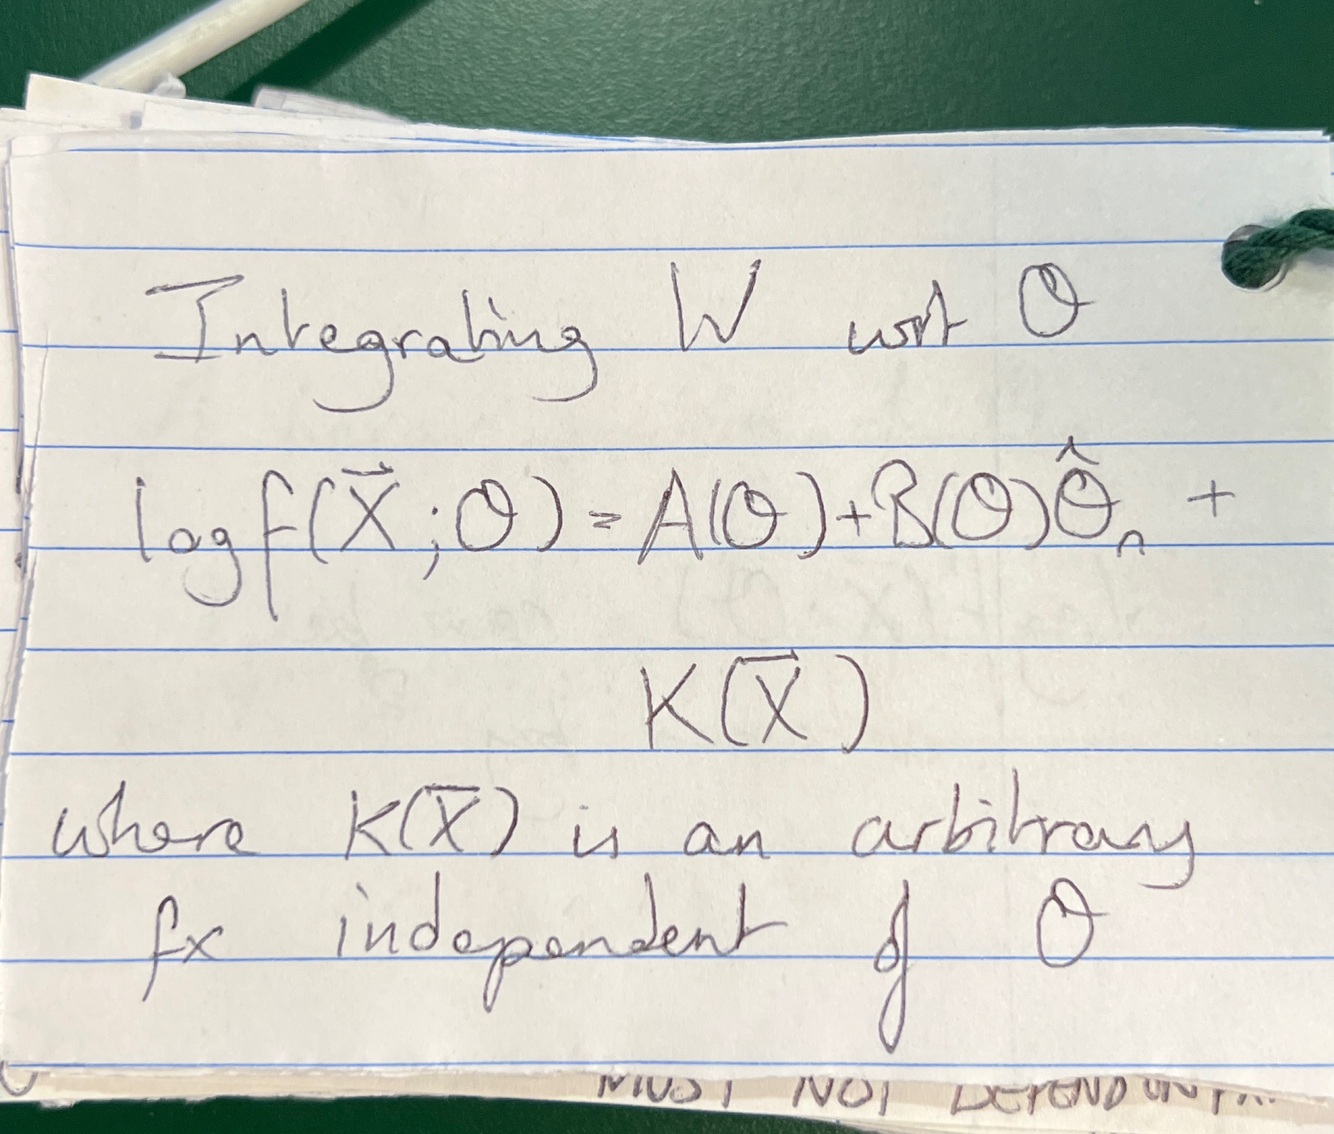 Integrating W wrt θ
log f(X⃗;θ) = A(θ)+B(θ)θ̂ₙ +
K(X⃗)
where K(X̅) is an arbitrary
fx independent of θ
MUST NOT DEPEND ON